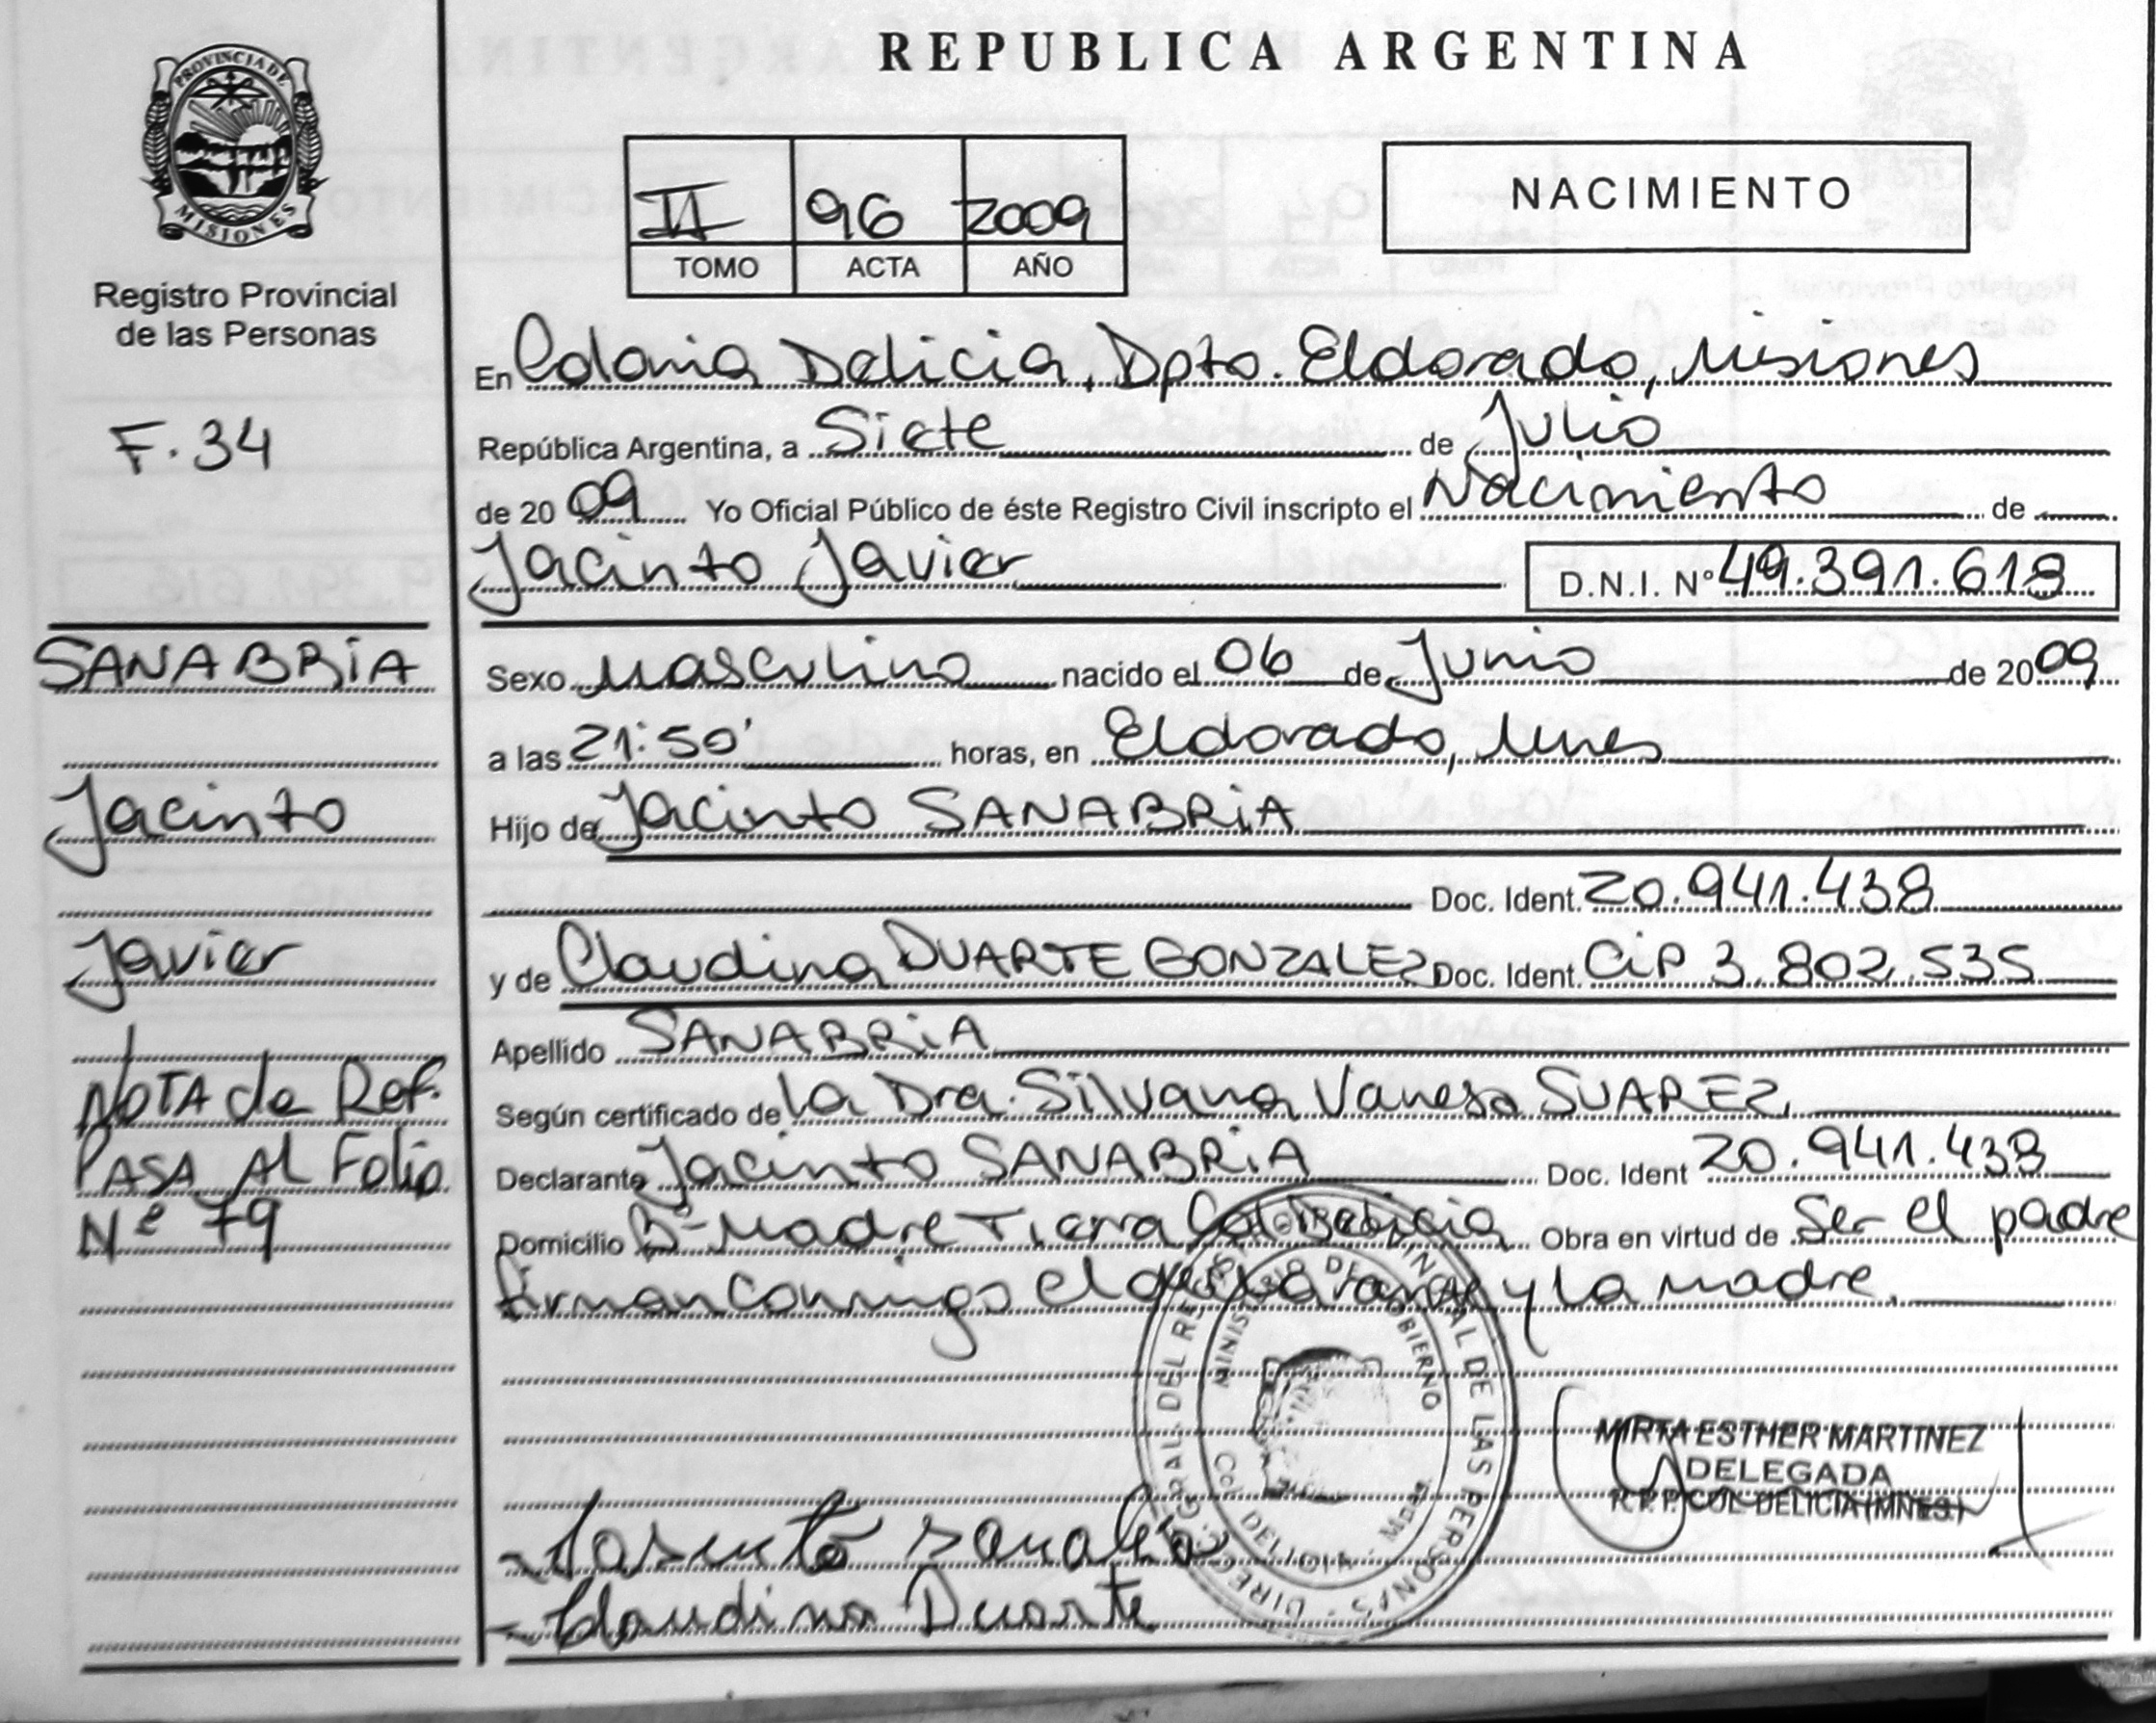 REPUBLICA ARGENTINA
PROVINCIA DE MISIONES
Registro Provincial
de las Personas
II 96 2009
TOMO ACTA AÑO
NACIMIENTO
F. 34
En Colonia Delicia, Dpto. Eldorado, Misiones
República Argentina, a Siete de Julio
de 2009 Yo Oficial Público de éste Registro Civil inscripto el Nacimiento de
Jacinto Javier D.N.I. Nº 49.391.618
SANABRIA
Jacinto
Javier
NOTA de Ref.
PASA AL Folio
Nº 79
Sexo Masculino nacido el 06 de Junio de 2009
a las 21:50' horas, en Eldorado, Mnes
Hijo de Jacinto SANABRIA
Doc. Ident. 20.941.438
y de Claudina DUARTE GONZALEZ Doc. Ident. CIP 3.802.535
Apellido SANABRIA
Según certificado de la Dra. Silvana Vanesa SUAREZ,
Declarante Jacinto SANABRIA Doc. Ident 20.941.438
Domicilio Bº Madre Tierra Col. Delicia Obra en virtud de Ser el padre
firman conmigo el declarante y la madre.
DIRECC. GRAL. DEL REG. PROVINCIAL DE LAS PERSONAS
MINISTERIO DE GOBIERNO
Col. DELICIA - Mnes
MIRTA ESTHER MARTINEZ
DELEGADA
R.P.P. COL. DELICIA (MNES)
Claudina Duarte